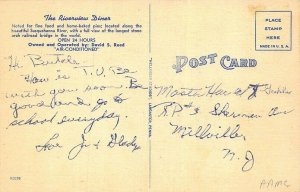 The Riverview Diner
Noted for fine food and home-baked pies; located along the
beautiful Susquehanna River, with a view of the longest stone
arch railroad bridge in the world.
OPEN 24 HOURS
Owned and Operated by: David S. Reed
"AIR-CONDITIONED"
Hi Butch:
How is T.V.? So
wish you soon. Be
good and go to
school everyday.
Love Jo & Gladys
POST CARD
PLACE
STAMP
HERE
MADE IN U.S.A.
Master Harold
R.P. # Sherman Av
Millville
N.J